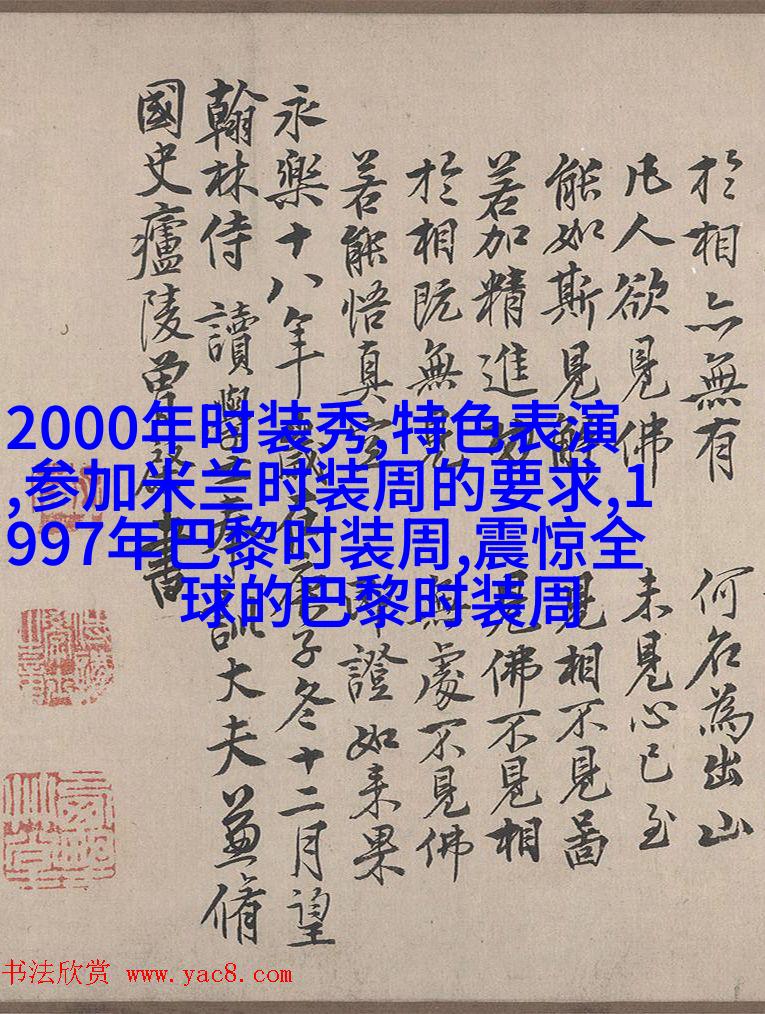 於相亦無有 何名為出山
凡人欲見佛 未見心已至
能如斯見解 見相不見啚
若加精進 見佛不見相
於相既無見 無處不見佛
若能悟真空 證如来果
永樂十八年歲在庚子冬十二月望
翰林侍讀學士奉訓大夫兼脩
國史廬陵曾棨書
2000年时装秀,特色表演
,参加米兰时装周的要求,1
997年巴黎时装周,震惊全
球的巴黎时装周
书法欣赏 www.yac8.com